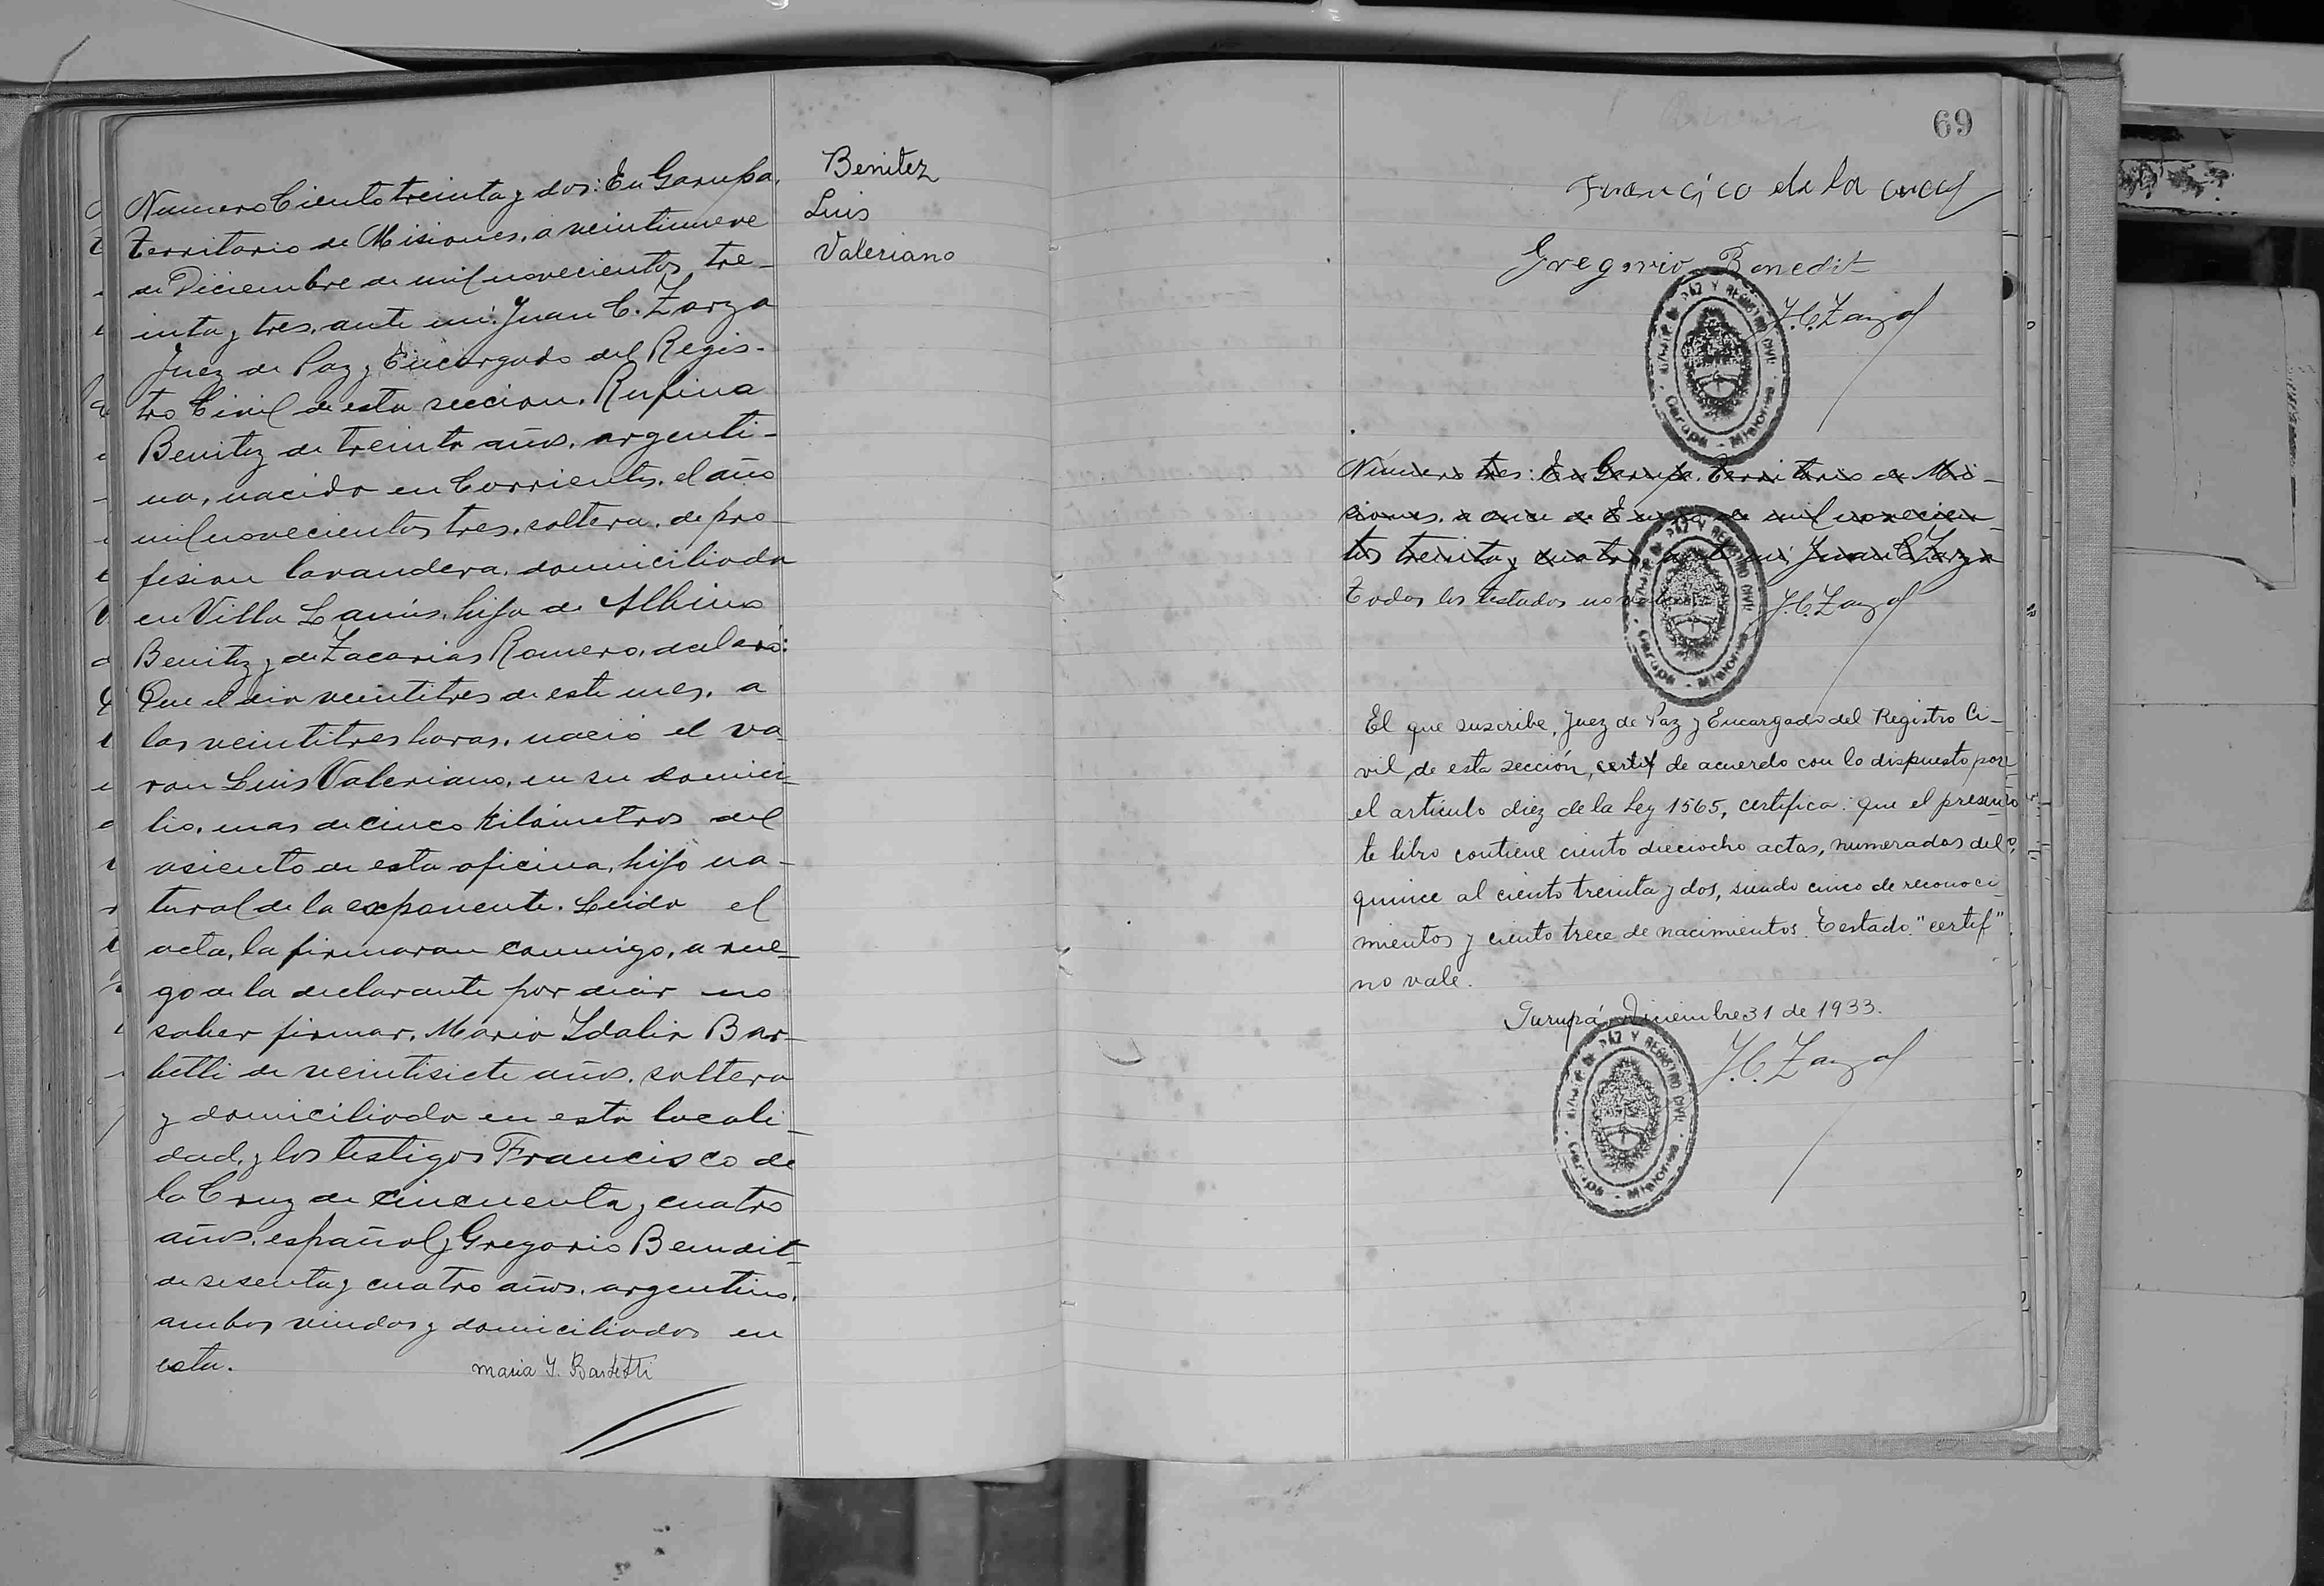 Numero Ciento treinta y dos: En Garupa,
Territorio de Misiones, a veintinueve
de Diciembre de mil novecientos tre-
inta y tres, ante mi: Juan C. Zarza
Juez de Paz y Encargado del Regis-
tro Civil de esta seccion, Rufina
Benitez de treinta años, argenti-
na, nacida en Corrientes, el año
mil novecientos tres, soltera, de pro-
fesion lavandera, domiciliada
en Villa Lanús, hija de Albino
Benitez y de Zacarias Romero, declaró:
Que el dia veintitres de este mes, a
las veintitres horas, nació el va-
ron Luis Valeriano, en su domici-
lio, mas de cinco kilómetros del
asiento de esta oficina, hijo na-
tural de la exponente. Leida el
acta, la firmaran conmigo, a rue-
go de la declarante por decir no
saber firmar, Maria Idalia Bar-
betti de veintisiete años, soltera
y domiciliada en esta locali-
dad, y los testigos Francisco de
la Cruz de cincuenta y cuatro
años, español y Gregorio Benedit
de sesenta y cuatro años, argentino,
ambos viudos y domiciliados en
esta.
maria I. Barbetti
Benitez
Luis
Valeriano
69
Francisco de la cruz
Gregorio Benedit
J.C. Zarza
PAZ Y REGISTRO CIVIL
Garupá - Misiones
Número tres: En Garupa, Territorio de Mi-
siones, a once de Enero de mil novecien-
tos treinta y cuatro, ante mi, Juan C. Zarza
Todos los testados no valen
J.C. Zarza
PAZ Y REGISTRO CIVIL
Garupá - Misiones
El que suscribe, Juez de Paz y Encargado del Registro Ci-
vil, de esta sección, certif de acuerdo con lo dispuesto por
el artículo diez de la Ley 1565, certifica: que el presen-
te libro contiene ciento dieciocho actas, numeradas del
quince al ciento treinta y dos, siendo cinco de reconoci-
mientos y ciento trece de nacimientos. Testado: "certif"
no vale.
Garupá, Diciembre 31 de 1933.
J.C. Zarza
PAZ Y REGISTRO CIVIL
Garupá - Misiones